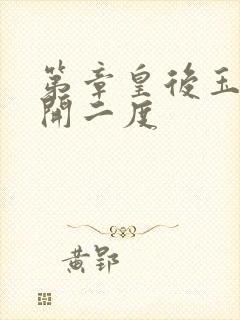 第章皇後玉
開二度
黄郢